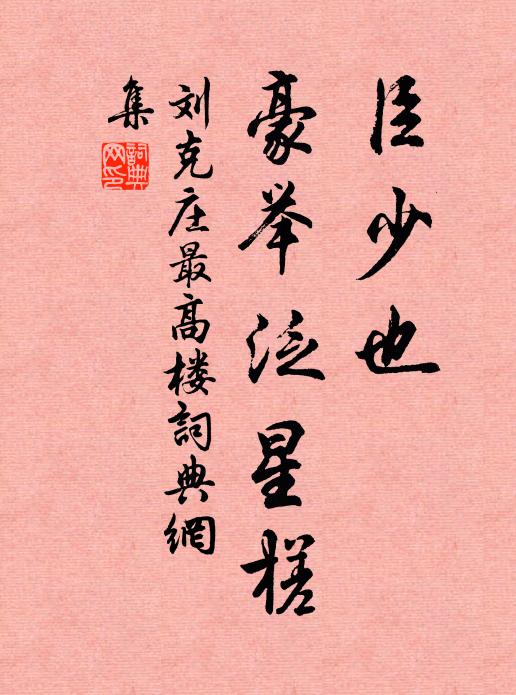 臣少也
豪举泛星槎
刘克庄最高楼詞典網
集
詞典網印